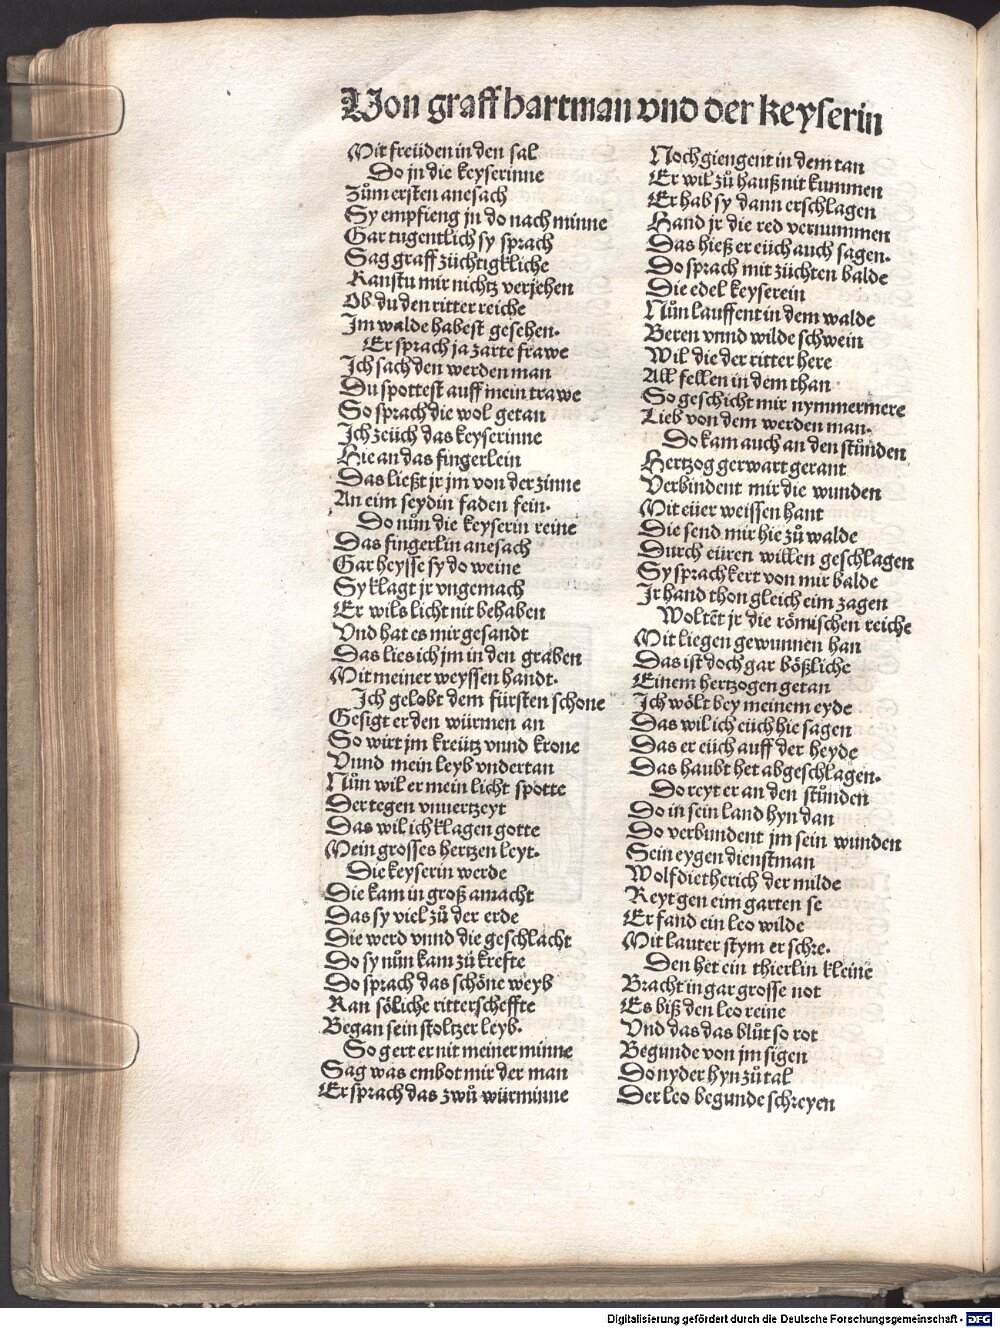 Von graff hartman vnd der keyserin
Mit freüden in den sal
Do jn die keyserinne
Zům ersten anesach
Sy empfieng jn do nach minne
Gar tugentlich sy sprach
Sag graff züchtigkliche
Kanstu mir nichtz verjehen
Ob du den ritter reiche
Im walde habest gesehen.
Er sprach ja zarte frawe
Ich sach den werden man
Du spottest auff mein trawe
So sprach die wol getan
Ich zeüch das keyserinne
Hie an das fingerlein
Das ließt jr jm von der zinne
An eim seydin faden fein.
Do nůn die keyserin reine
Das fingerlin anesach
Gar heysse sy do weine
Sy klagt jr vngemach
Er wils licht nit behaben
Vnd hat es mir gesandt
Das lies ich jm in den graben
Mit meiner weyssen handt.
Ich gelobt dem fürsten schone
Gesigt er den würmen an
So wirt jm kreütz vnnd krone
Vnnd mein leyb vndertan
Nůn wil er mein licht spotte
Der tegen vnuertzeyt
Das wil ich klagen gotte
Mein grosses hertzen leyt.
Die keyserin werde
Die kam in groß amacht
Das sy viel zů der erde
Die werd vnnd die geschlacht
Do sy nůn kam zů krefte
Do sprach das schöne weyb
Kan söliche ritterscheffte
Began sein stoltzer leyb.
So gert er nit meiner minne
Sag was embot mir der man
Er sprach das zwů würminne
Noch giengent in dem tan
Er wil zů hauß nit kummen
Er hab sy dann erschlagen
Hand jr die red vernummen
Das hieß er eüch auch sagen.
Do sprach mit züchten balde
Die edel keyserein
Nůn lauffent in dem walde
Beren vnnd wilde schwein
Wil die der ritter here
All fellen in dem than
So geschicht mir nymmermere
Lieb von dem werden man.
Do kam auch an den stůnden
Hertzog gerwart gerant
Verbindent mir die wunden
Mit eüer weissen hant
Die send mir hie zů walde
Durch eüren willen geschlagen
Sy sprach kert von mir balde
Ir hand thon gleich eim zagen
Woltēt jr die römischen reiche
Mit liegen gewunnen han
Das ist doch gar bößliche
Einem hertzogen getan
Ich wölt bey meinem eyde
Das wil ich eüch hie sagen
Das er eüch auff der heyde
Das haubt het abgeschlagen.
Do reyt er an den stůnden
Do in sein land hyn dan
Do verbundent jm sein wunden
Sein eygen dienstman
Wolfdietherich der milde
Reyt gen eim garten se
Er fand ein leo wilde
Mit lauter stym er schre.
Den het ein thierlin kleine
Bracht in gar grosse not
Es biß den leo reine
Vnd das das blůt so rot
Begunde von jm sigen
Do nyder hyn zů tal
Der leo begunde schreyen
Digitalisierung gefördert durch die Deutsche Forschungsgemeinschaft - DFG